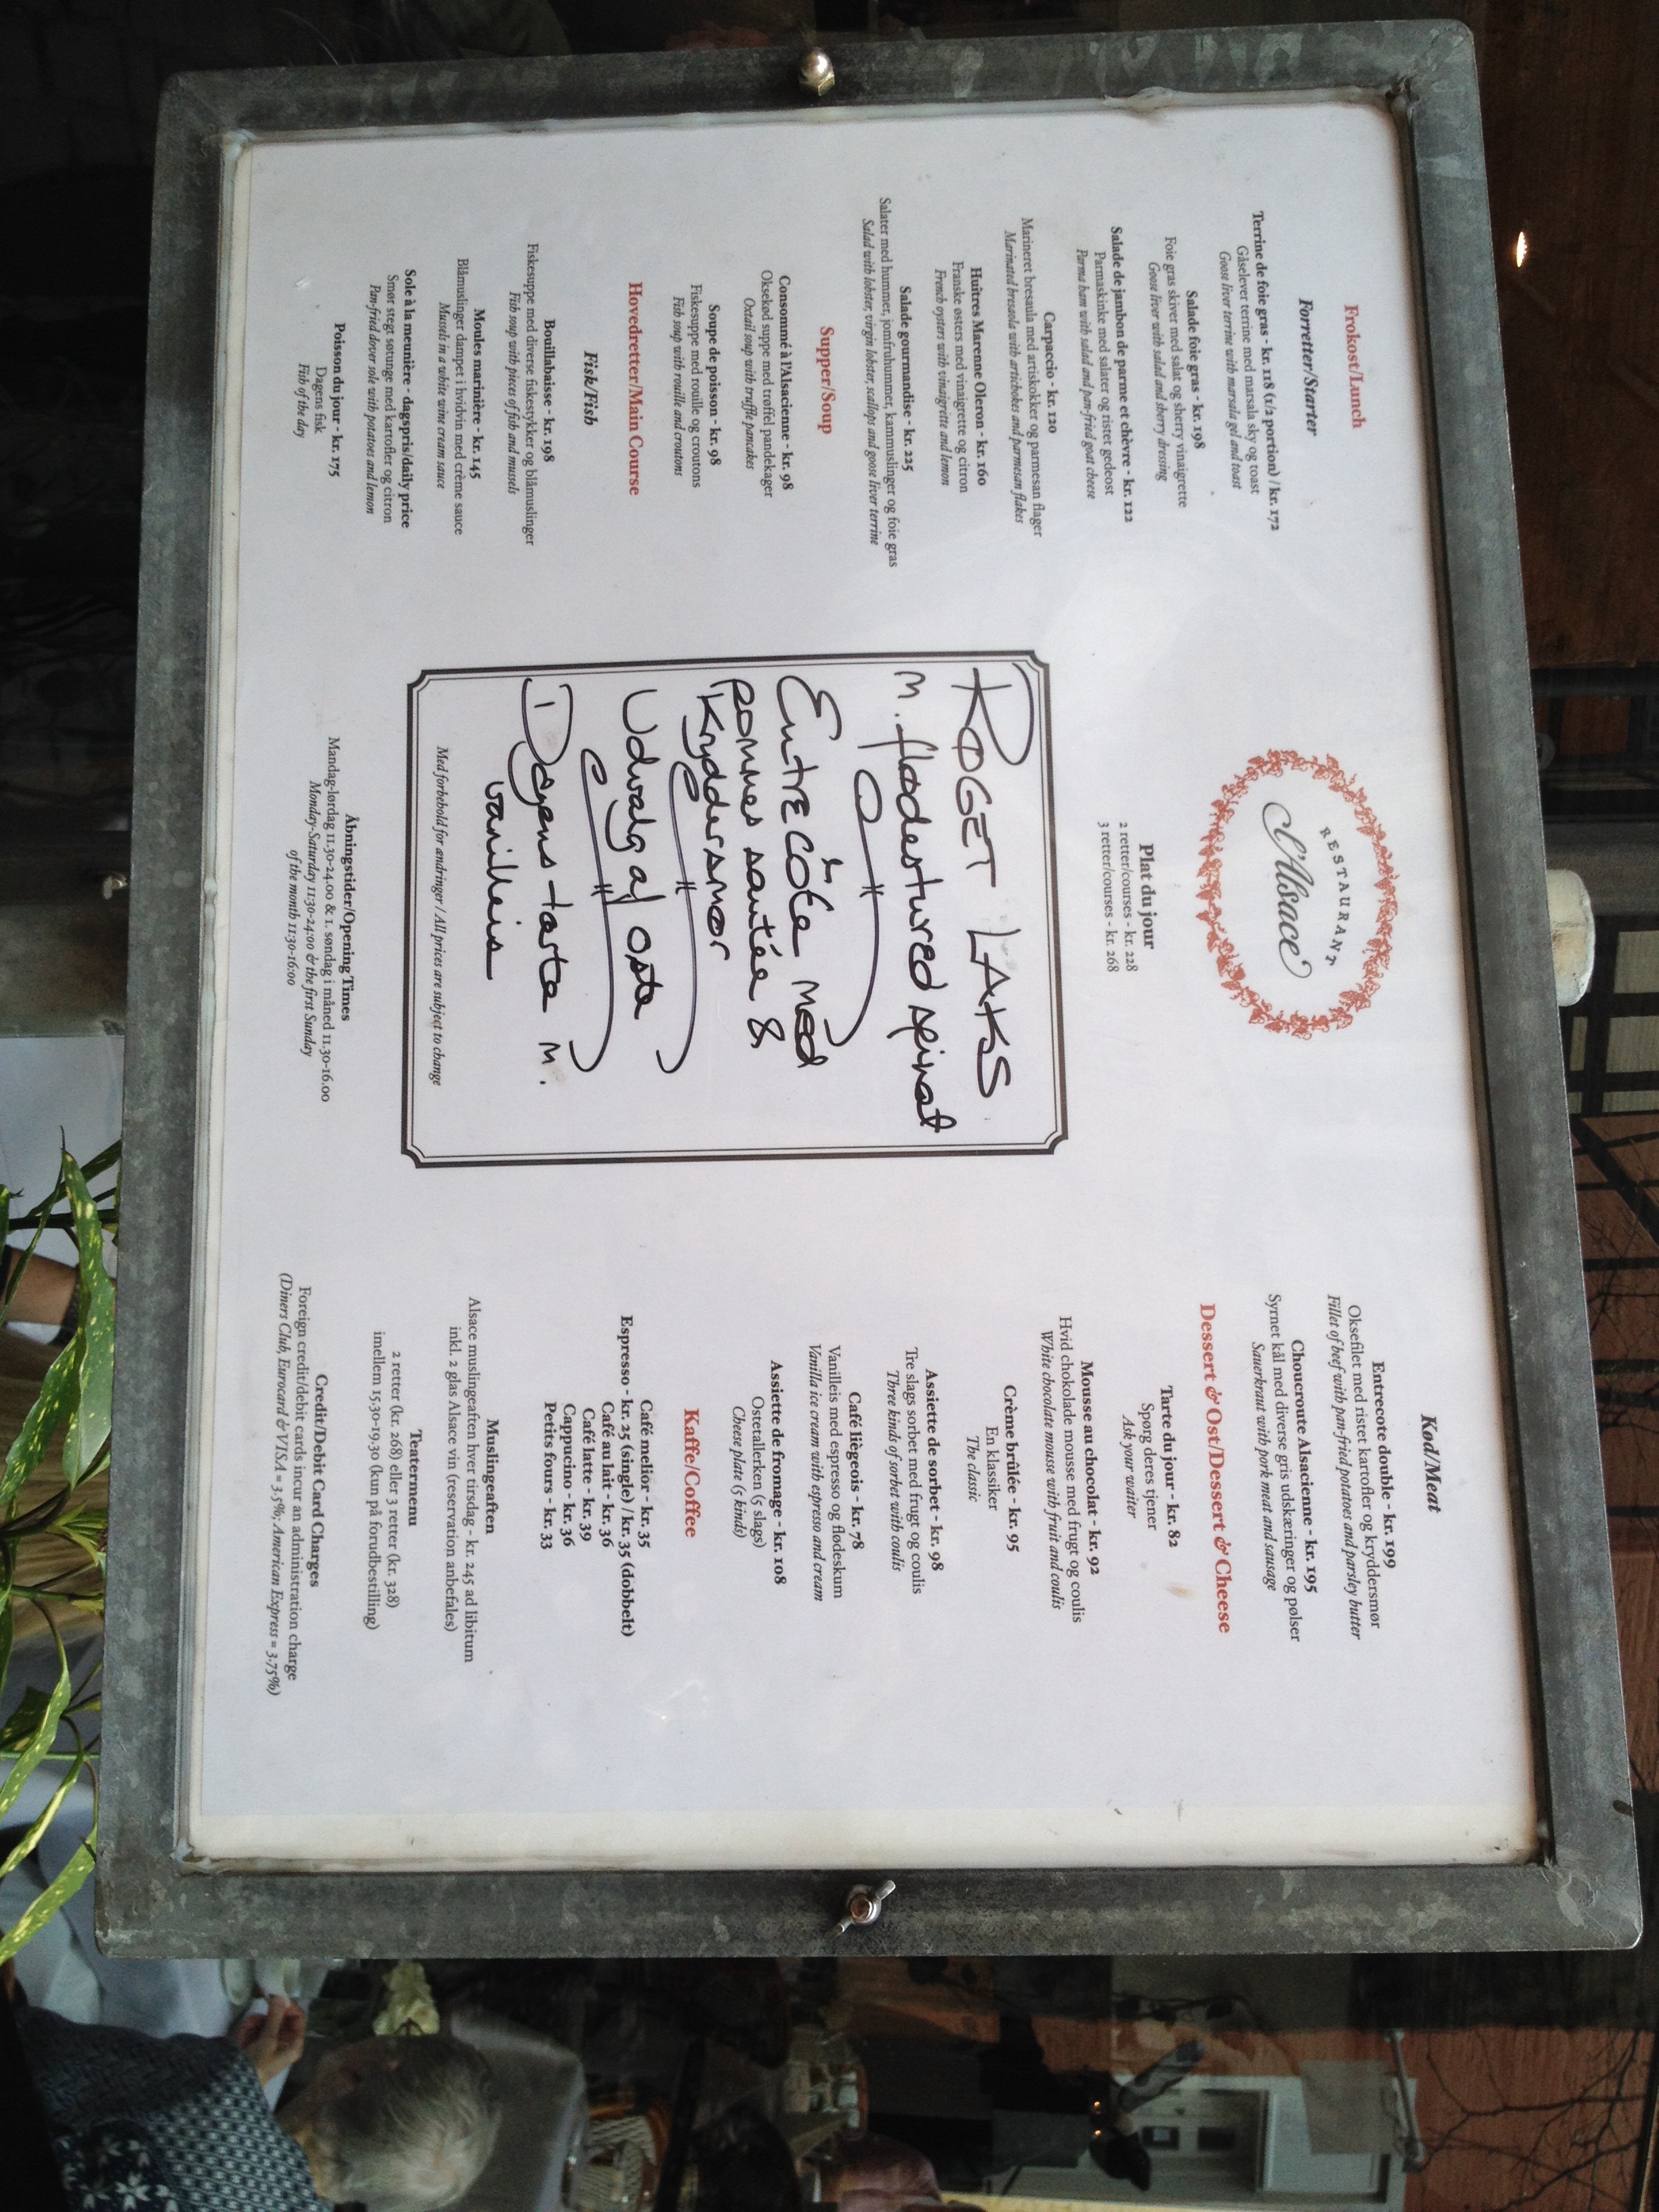 Frokost/Lunch
Forretter/Starter
Terrine de foie gras - kr. 118 (1/2 portion) / kr. 172
Gåselever terrine med marsala sky og toast
Goose liver terrine with marsala gel and toast
Salade foie gras - kr. 198
Foie gras skiver med salat og sherry vinaigrette
Goose liver with salad and sherry dressing
Salade de jambon de parme et chèvre - kr. 122
Parmaskinke med salater og ristet gedeost
Parma ham with salad and pan-fried goat cheese
Carpaccio - kr. 120
Marineret bresaula med artiskokker og parmesan flager
Marinated bresaola with artichokes and parmesan flakes
Huîtres Marenne Oleron - kr. 160
Franske østers med vinaigrette og citron
French oysters with vinaigrette and lemon
Salade gourmandise - kr. 225
Salater med hummer, jomfruhummer, kammuslinger og foie gras
Salad with lobster, virgin lobster, scallops and goose liver terrine
Supper/Soup
Consommé à l'Alsacienne - kr. 98
Oksekød suppe med trøffel pandekager
Oxtail soup with truffle pancakes
Soupe de poisson - kr. 98
Fiskesuppe med rouille og croutons
Fish soup with rouille and croutons
Hovedretter/Main Course
Fisk/Fish
Bouillabaisse - kr. 198
Fiskesuppe med diverse fiskestykker og blåmuslinger
Fish soup with pieces of fish and mussels
Moules marinière - kr. 145
Blåmuslinger dampet i hvidvin med crème sauce
Mussels in a white wine cream sauce
Sole à la meunière - dagspris/daily price
Smør stegt søtunge med kartofler og citron
Pan-fried dover sole with potatoes and lemon
Poisson du jour - kr. 175
Dagens fisk
Fish of the day
RESTAURANT
l'Alsace
Plat du jour
2 retter/courses - kr. 228
3 retter/courses - kr. 268
ROGET LAKS
m. flødesturred spinat
Entrecôte med
pommes sautée &
Kryddersmør
Udvalg af oste
Dagens tarte m.
vanilleis
Med forbehold for ændringer / All prices are subject to change
Åbningstider/Opening Times
Mandag-lørdag 11.30-24.00 & 1. søndag i måned 11.30-16.00
Monday-Saturday 11:30-24:00 & the first Sunday
of the month 11:30-16:00
Kød/Meat
Entrecote double - kr. 199
Oksefilet med ristet kartofler og kryddersmør
Fillet of beef with pan-fried potatoes and parsley butter
Choucroute Alsacienne - kr. 195
Syrnet kål med diverse gris udskæringer og pølser
Sauerkraut with pork meat and sausage
Dessert & Ost/Dessert & Cheese
Tarte du jour - kr. 82
Spørg deres tjener
Ask your waiter
Mousse au chocolat - kr. 92
Hvid chokolade mousse med frugt og coulis
White chocolate mousse with fruit and coulis
Crème brûlée - kr. 95
En klassiker
The classic
Assiette de sorbet - kr. 98
Tre slags sorbet med frugt og coulis
Three kinds of sorbet with coulis
Café liègeois - kr. 78
Vanilleis med espresso og flødeskum
Vanilla ice cream with espresso and cream
Assiette de fromage - kr. 108
Ostetallerken (5 slags)
Cheese plate (5 kinds)
Kaffe/Coffee
Café melior - kr. 35
Espresso - kr. 25 (single) / kr. 35 (dobbelt)
Café au lait - kr. 36
Café latte - kr. 39
Cappucino - kr. 36
Petits fours - kr. 33
Muslingeaften
Alsace muslingeaften hver tirsdag - kr. 245 ad libitum
inkl. 2 glas Alsace vin (reservation anbefales)
Teatermenu
2 retter (kr. 268) eller 3 retter (kr. 328)
imellem 15.30-19.30 (kun på forudbestilling)
Credit/Debit Card Charges
Foreign credit/debit cards incur an administration charge
(Diners Club, Eurocard & VISA = 3.5%; American Express = 3.75%)